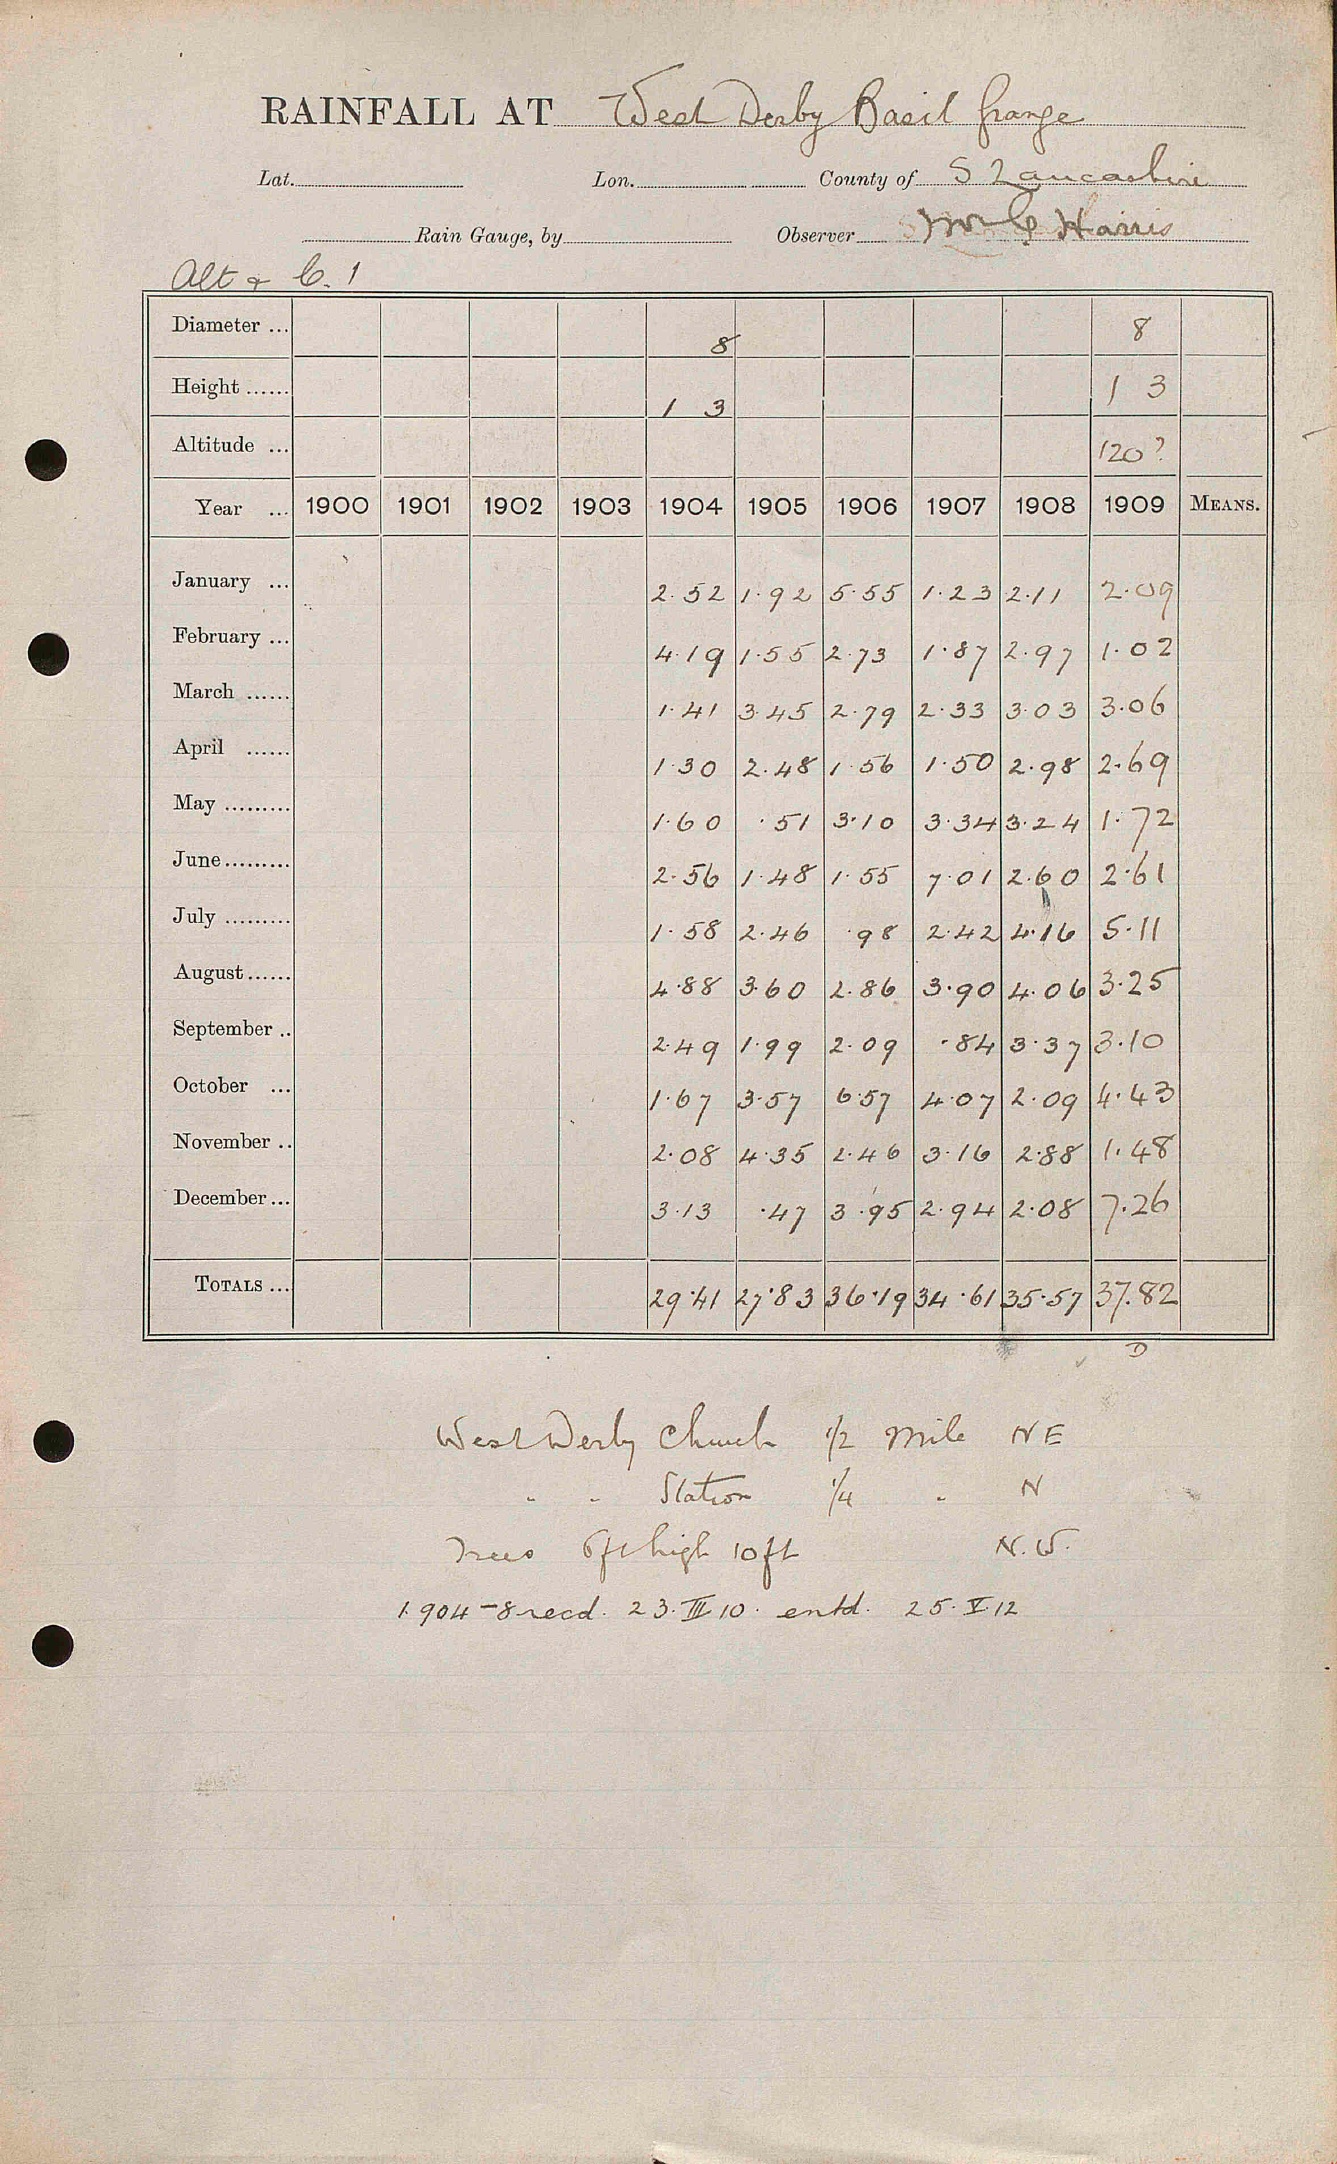 RAINFALL AT West Derby Basil Grange
Lat. Lon. County of S Lancashire
Rain Gauge, by Observer Harris
Alt & C. 1
Diameter ... 8 8
Height ...... 1 3 1 3
Altitude ... 120?
Year ... 1900 1901 1902 1903 1904 1905 1906 1907 1908 1909 MEANS.
January ... 2.52 1.92 5.55 1.23 2.11 2.09
February ... 4.19 1.55 2.73 1.87 2.97 1.02
March ...... 1.41 3.45 2.79 2.33 3.03 3.06
April ...... 1.30 2.48 1.56 1.50 2.98 2.69
May ......... 1.60 .51 3.10 3.34 3.24 1.72
June ......... 2.56 1.48 1.55 7.01 2.60 2.61
July ......... 1.58 2.46 .98 2.42 4.16 5.11
August ...... 4.88 3.60 2.86 3.90 4.06 3.25
September .. 2.49 1.99 2.09 .84 3.37 3.10
October ... 1.67 3.57 6.57 4.07 2.09 4.43
November .. 2.08 4.35 2.46 3.16 2.88 1.48
December ... 3.13 .47 3.95 2.94 2.08 7.26
TOTALS ... 29.41 27.83 36.19 34.61 35.57 37.82
D
West Derby Church 1/2 Mile NE
" " Station 1/4 " N
Trees 6ft high 10ft N.W.
1904-8 recd. 23.III 10. entd. 25.V.12